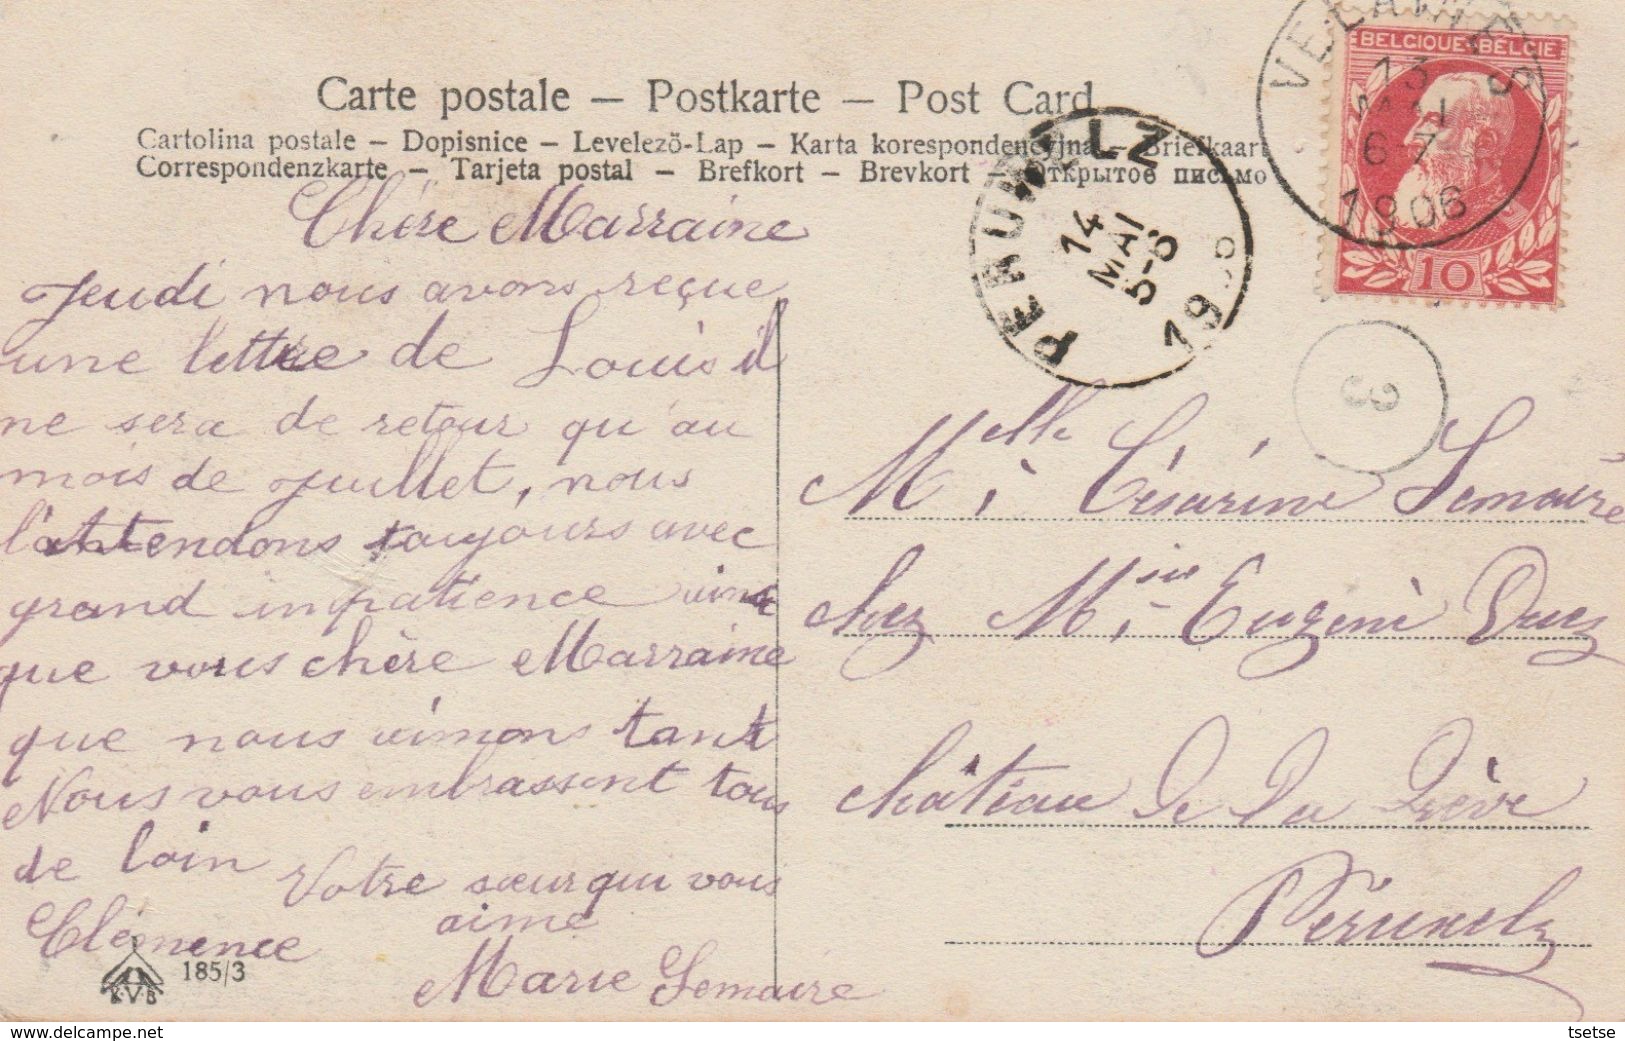 Carte postale – Postkarte – Post Card
Cartolina postale – Dopisnice – Levelező-Lap – Karta korespondencyjna – Briefkaart
Correspondenzkarte – Tarjeta postal – Brefkort – Brevkort – Открытое письмо
BELGIQUE·BELGIË
10
VELAINES
13
MAI
6-7
1906
PERUWELZ
14
MAI
5-6
19
3
Chère Marraine
Jeudi nous avons reçue
une lettre de Louis il
ne sera de retour qu'au
mois de Juillet, nous
l'attendons toujours avec
grand inpatience
que vous chère Marraine
que nous aimons tant
Nous vous embrassent tous
de loin
Votre sœur qui vous
aime
Clémence
Marie Lemaire
Melle Césarine Lemaire
chez Eugéni
château de la
Péruwelz
K.V.B
185/3
www.delcampe.net
tsetse